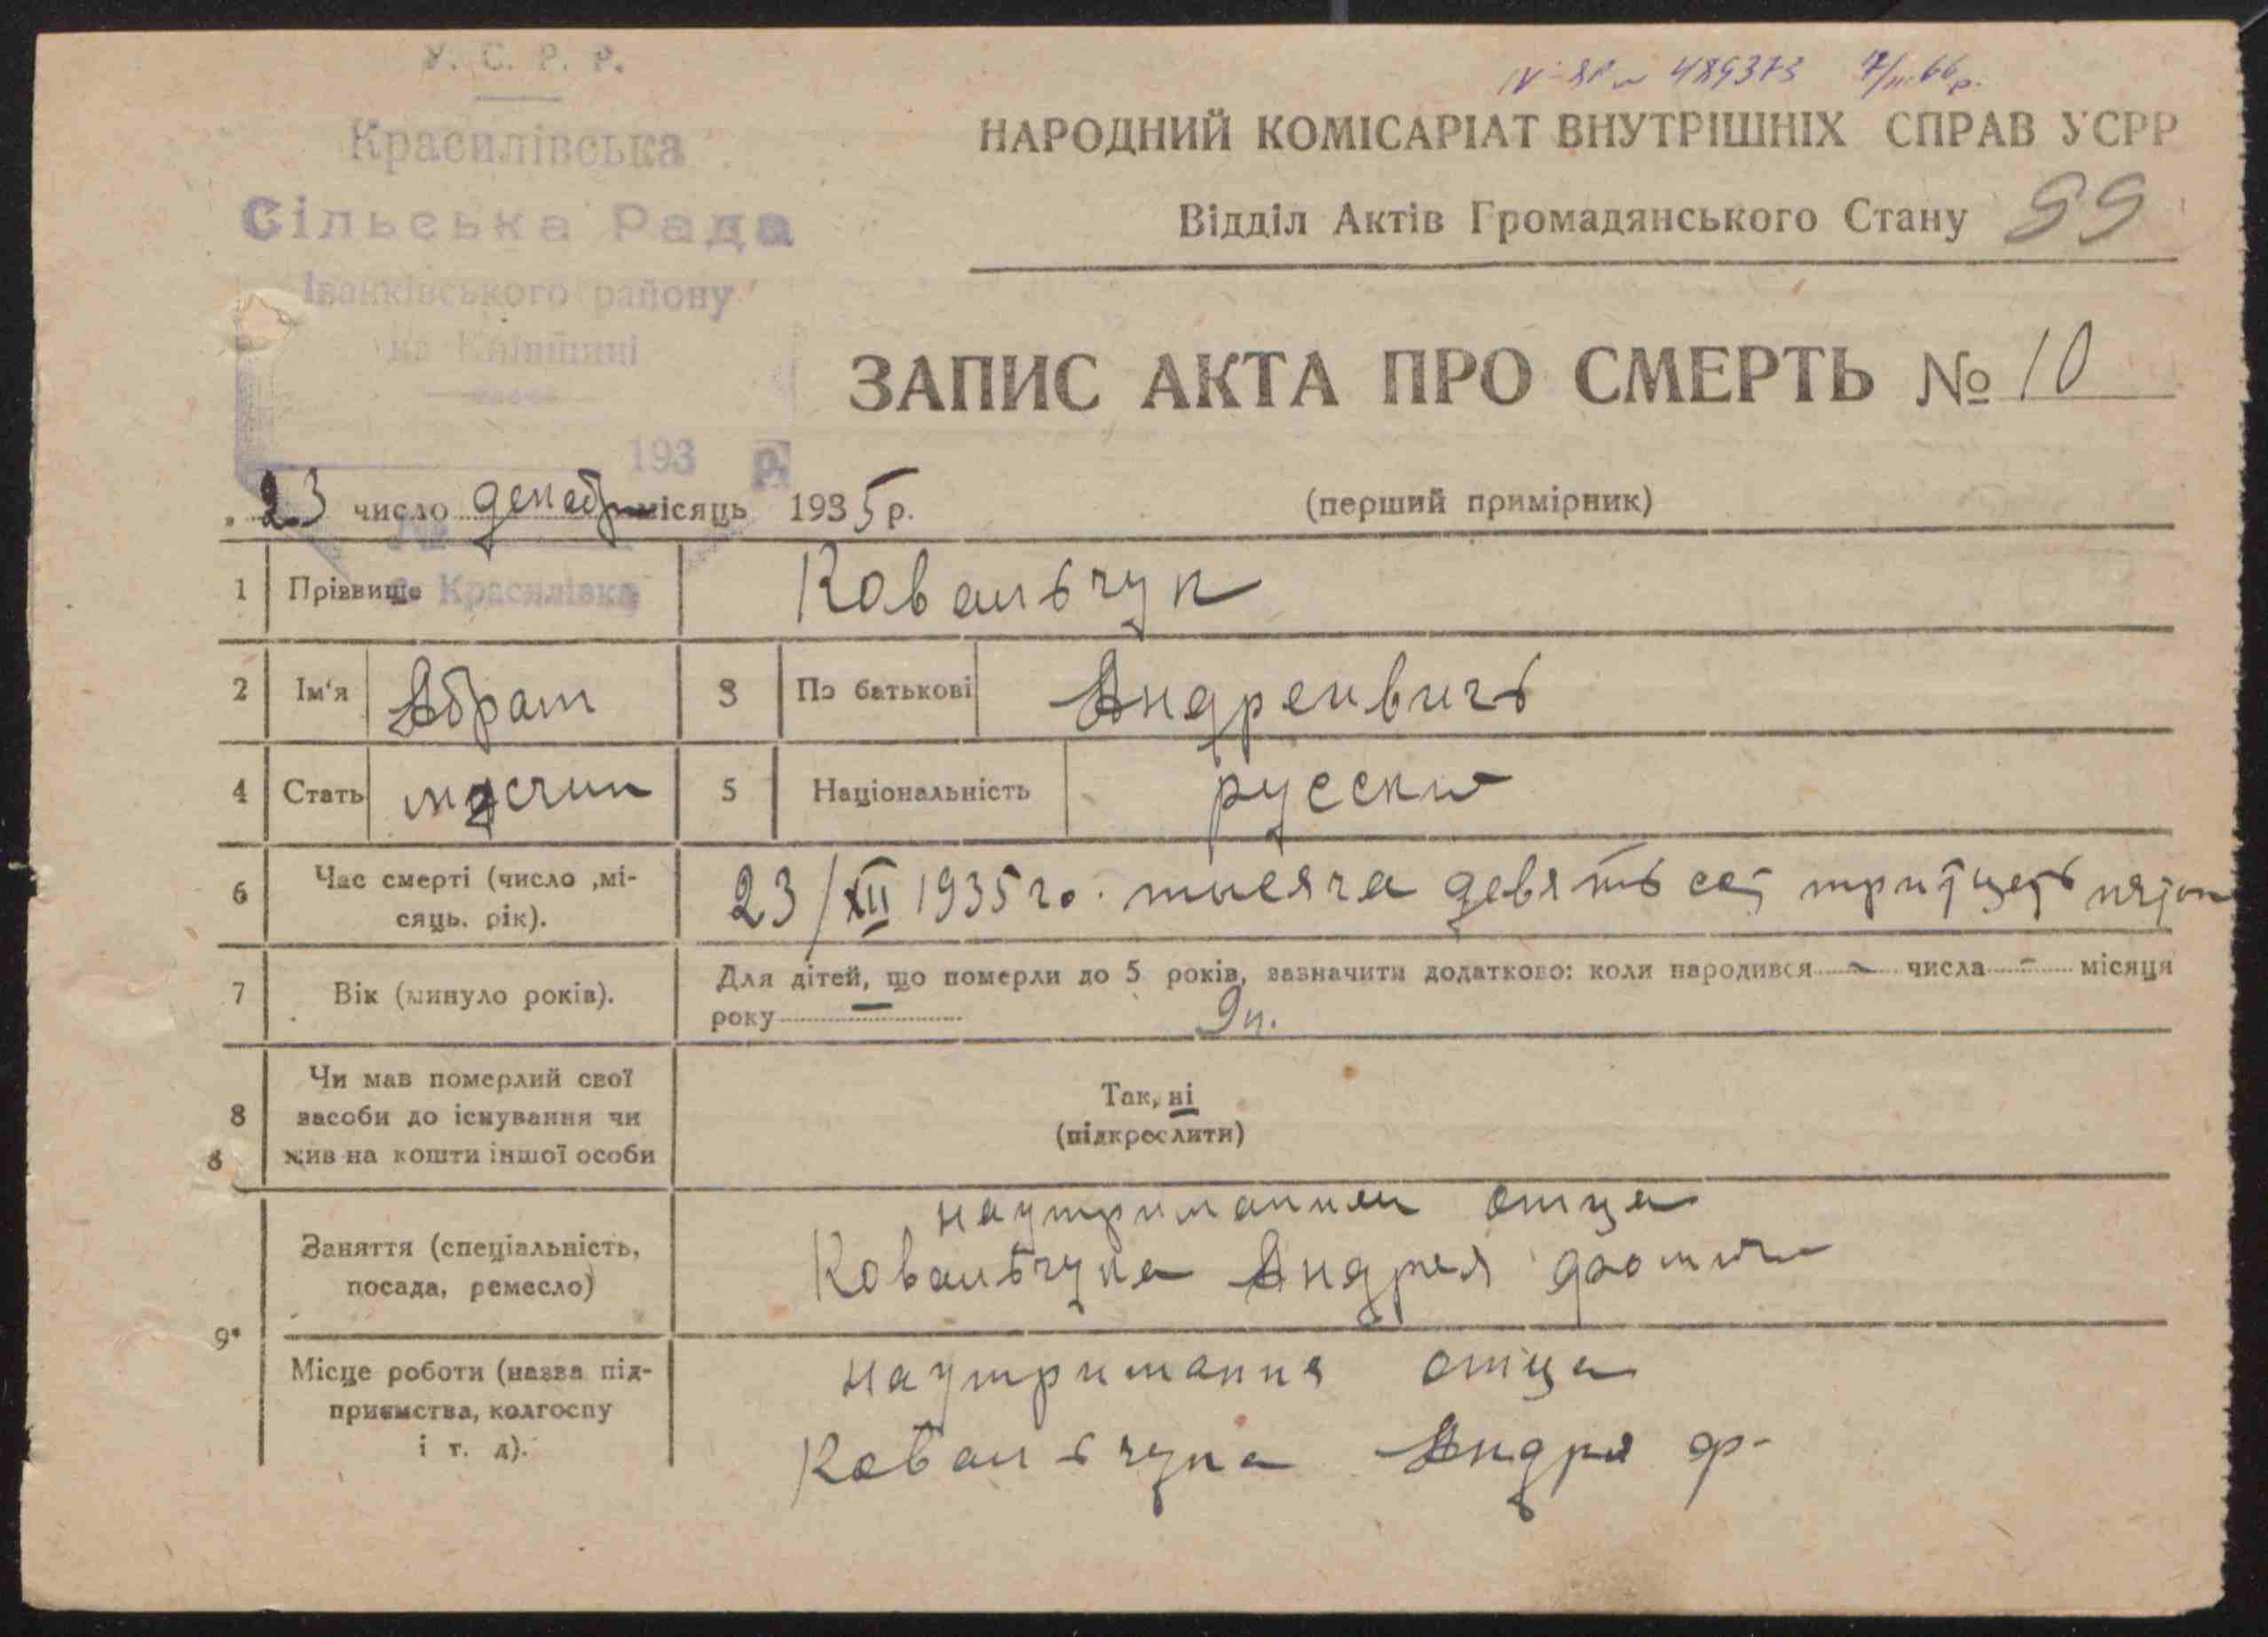 У. С. Р. Р.
Красилівська
Сільська Рада
Іванківського району
на Київщині
193 р.
с. Красилівка
489373
НАРОДНИЙ КОМІСАРІАТ ВНУТРІШНІХ СПРАВ УСРР
Відділ Актів Громадянського Стану 99
ЗАПИС АКТА ПРО СМЕРТЬ № 10
23 число декабр місяць 1935 р.
(перший примірник)
1 Прізвище Ковальчук
2 Ім'я Абрам 3 По батькові Андреивичь
4 Стать мусчин 5 Національність русски
6 Час смерті (число ,мі-
сяць. рік).
23/XII 1935 го. тысяча девять сот тритцеть пятом
7 Вік (минуло років).
Для дітей, що померли до 5 років, зазначити додатково: коли народився - числа - місяця
року -
8 Чи мав померлий свої
засоби до існування чи
жив на кошти іншої особи
Так, ні
(підкреслити)
9*
Заняття (спеціальність,
посада, ремесло)
наутримании отца
Ковальчука Андрея
Місце роботи (назва під-
приємства, колгоспу
і т. д).
наутримання отца
Ковальчука Андря ф-